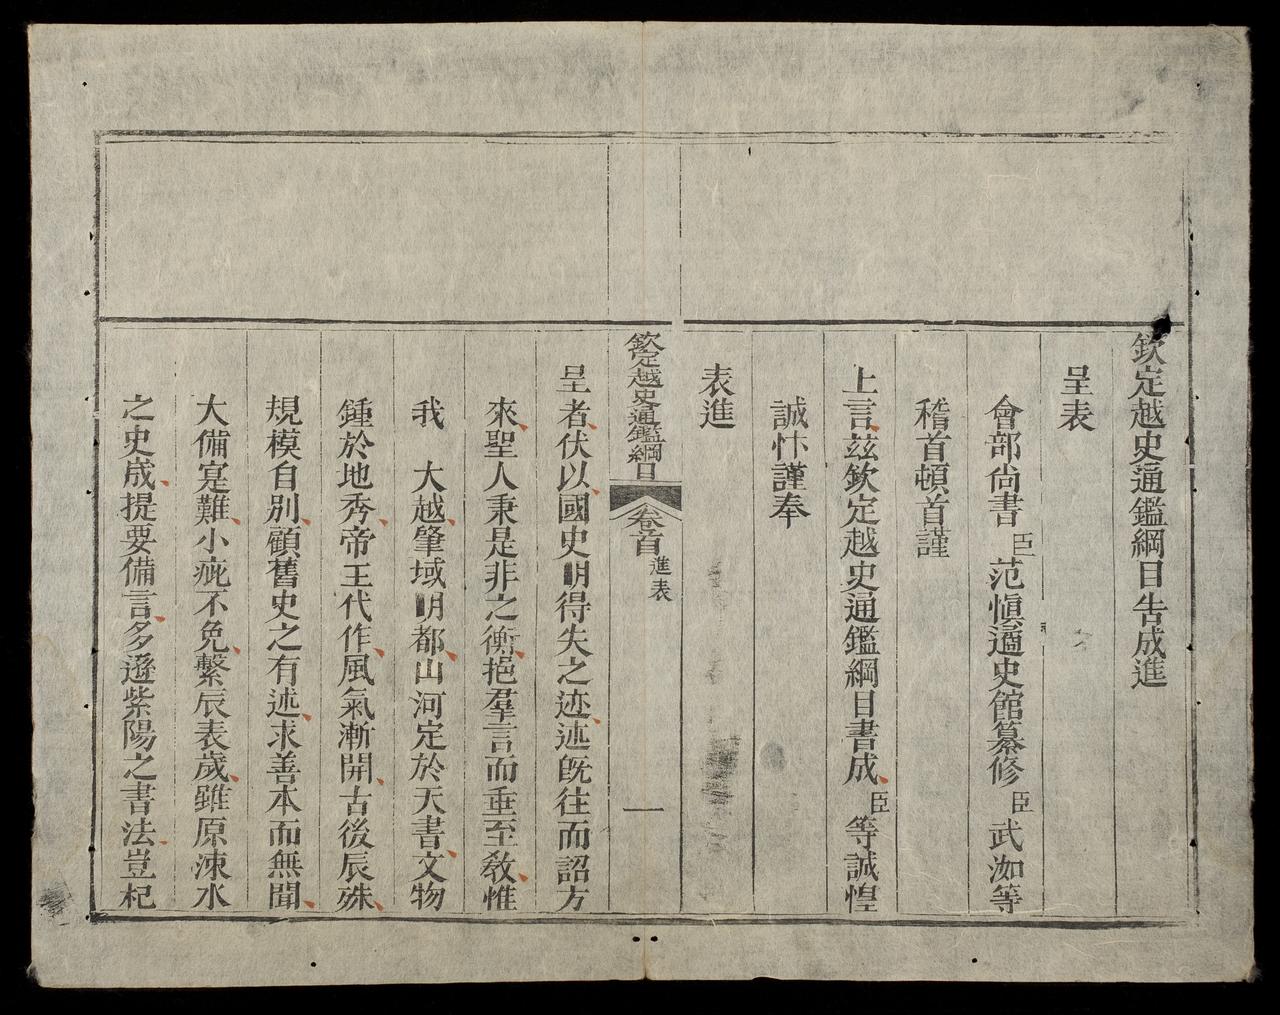 欽定越史通鑑綱目告成進
呈表
會部尚書臣范愼遹史館纂修臣武洳等
稽首頓首謹
上言茲欽定越史通鑑綱目書成臣等誠惶
誠忭謹奉
表進
欽定越史通鑑綱目 卷首 進表 一
呈者伏以國史明得失之迹迹旣往而詔方
來聖人秉是非之衡挹羣言而垂至敎惟
我 大越肇域明都山河定於天書文物
鍾於地秀帝王代作風氣漸開古後辰殊
規模自別顧舊史之有述求善本而無聞
大備寔難小疵不免繫辰表歲雖原涑水
之史成提要備言多遜紫陽之書法豈杞